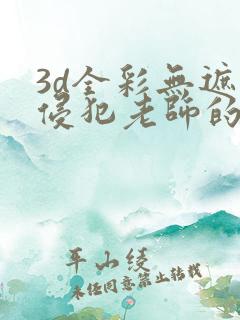 3d全彩無遮
侵犯老師的
平山綾
未任同意禁止转载